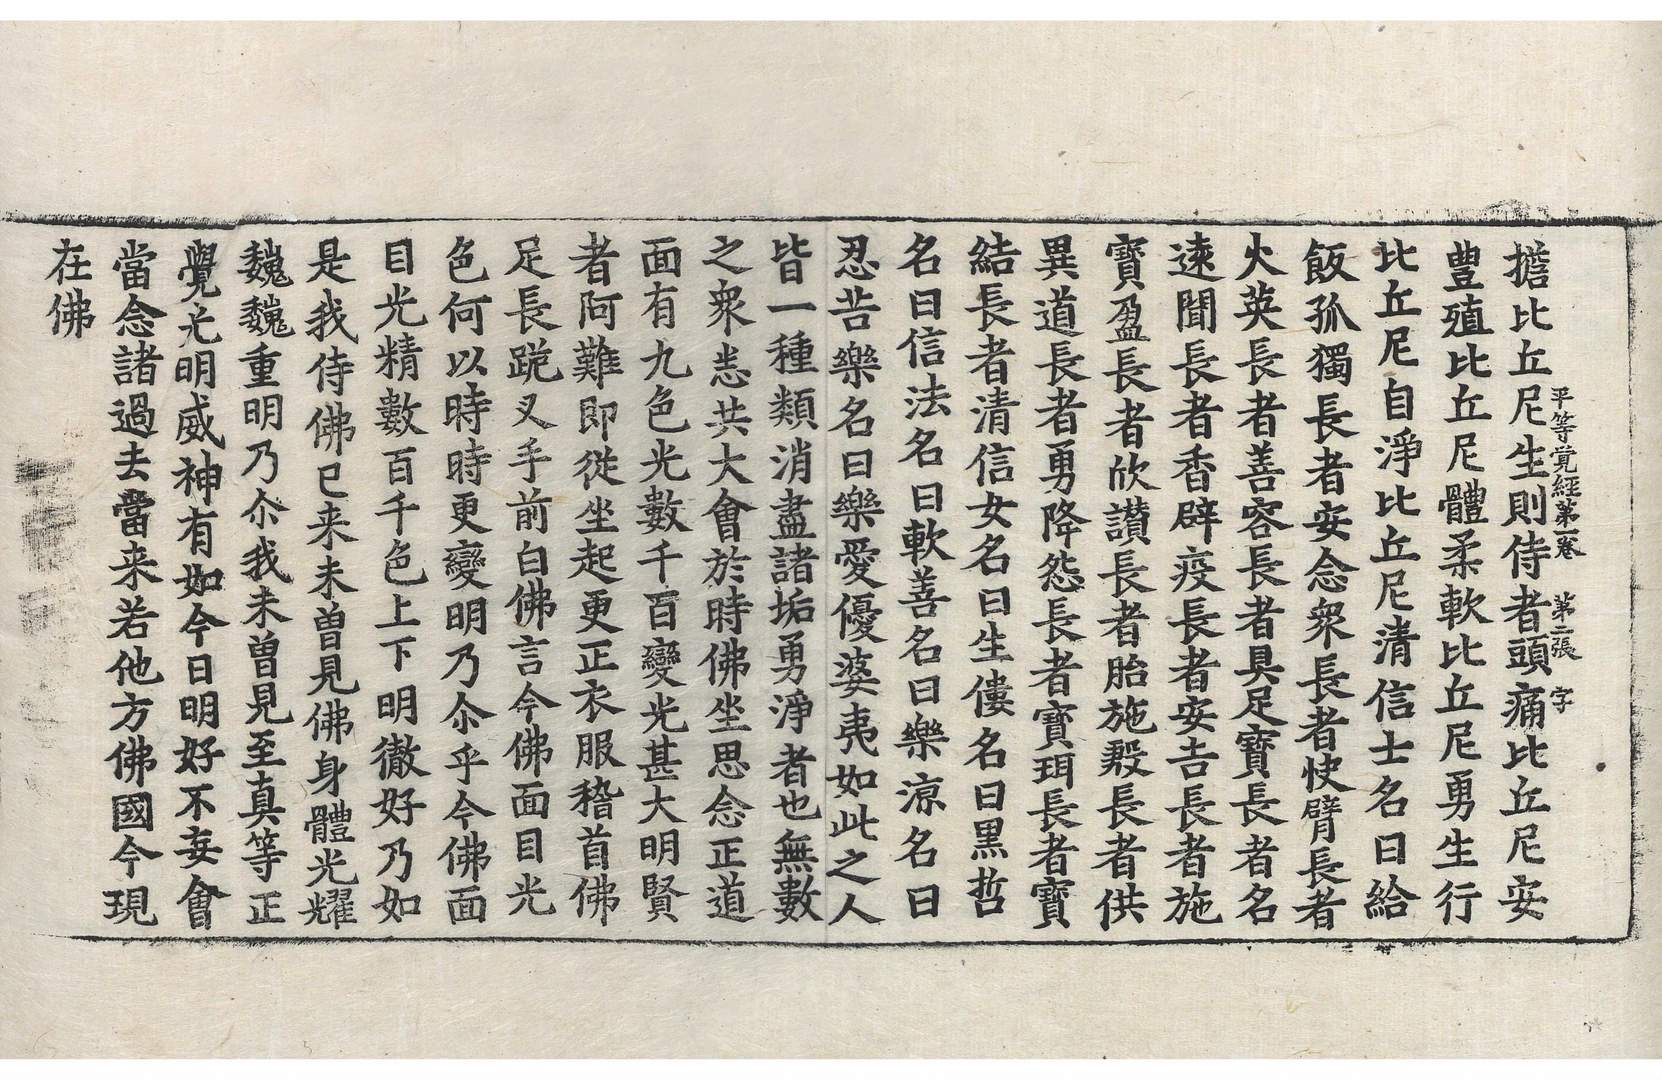 平等覺経第一卷 第二張 字
擔比丘尼生則侍者頭痛比丘尼安
豊殖比丘尼體柔軟比丘尼勇生行
比丘尼自淨比丘尼清信士名曰給
飯孤獨長者安念衆長者快臂長者
火英長者善容長者具足寶長者名
遠聞長者香辟疫長者安吉長者施
寶盈長者欣讃長者胎施殷長者供
異道長者勇降怨長者寶珥長者寶
結長者清信女名曰生僂名曰黒哲
名曰信法名曰軟善名曰樂涼名曰
忍苦樂名曰樂愛優婆夷如此之人
皆一種類消盡諸垢勇淨者也無數
之衆恚共大會於時佛坐思念正道
面有九色光數千百變光甚大明賢
者阿難即從坐起更正衣服稽首佛
足長跪叉手前白佛言今佛面目光
色何以時時更變明乃尒乎今佛面
目光精數百千色上下明徹好乃如
是我侍佛已来未曽見佛身體光耀
巍巍重明乃尒我未曽見至真等正
覺光明威神有如今日明好不妄會
當念諸過去當来若他方佛國今現
在佛